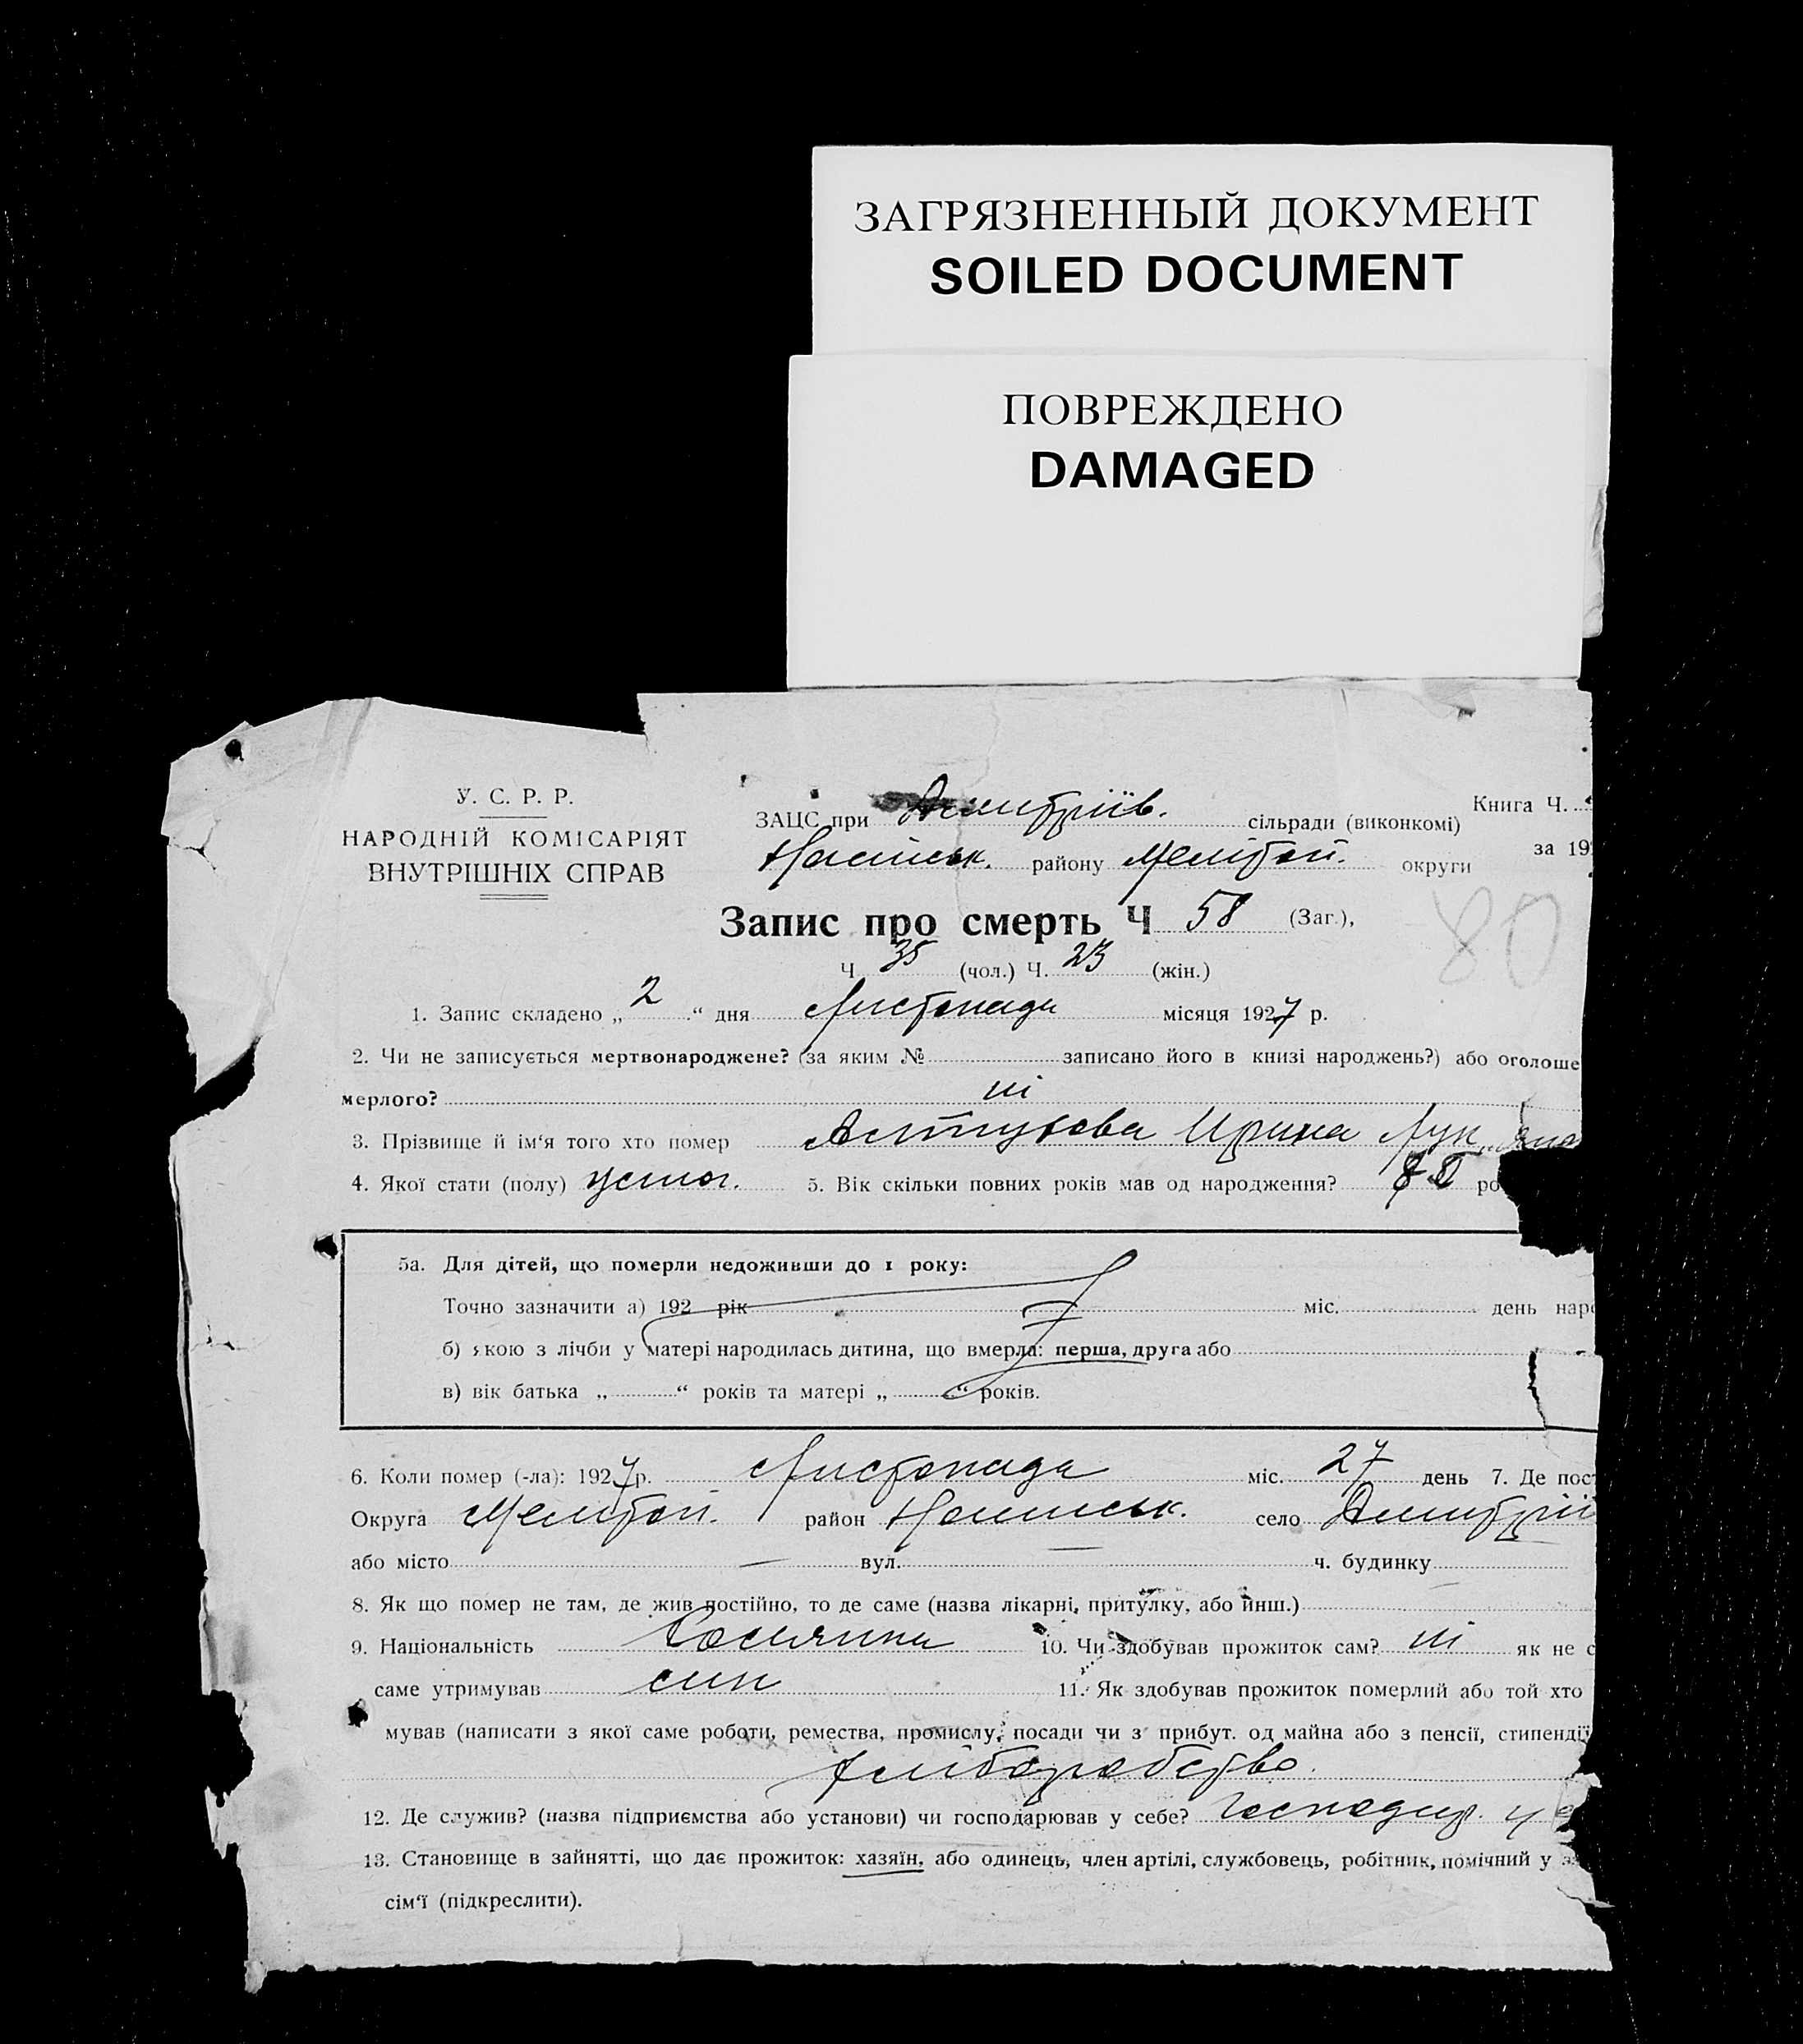 ЗАГРЯЗНЕННЫЙ ДОКУМЕНТ
SOILED DOCUMENT
ПОВРЕЖДЕНО
DAMAGED
У. С. Р. Р.
НАРОДНІЙ КОМІСАРІЯТ
ВНУТРІШНІХ СПРАВ
ЗАЦС при Дмитріїв. сільради (виконкомі)
Книга Ч.
району Мелітоп. округи
за 19
Запис про смерть Ч 58 (Заг.),
80
Ч 35 (чол.) Ч. 23 (жін.)
1. Запис складено „ 2 “ дня Листопада місяця 1927 р.
2. Чи не записується мертвонароджене? (за яким № записано його в книзі народжень?) або оголоше
мерлого? ні
3. Прізвище й ім‘я того хто помер Ирина Лук
4. Якої стати (полу) 5. Вік скільки повних років мав од народження? ро
5а. Для дітей, що померли недоживши до 1 року:
Точно зазначити а) 192 рік міс. день наро
б) якою з лічби у матері народилась дитина, що вмерла: перша, друга або
в) вік батька „ “ років та матері „ “ років.
6. Коли помер (-ла): 1927 р. Листопада міс. 27 день 7. Де пос
Округа Мелітоп. район село Дмитрії
або місто — вул. — ч. будинку —
8. Як що помер не там, де жив постійно, то де саме (назва лікарні, притулку, або инш.)
9. Національність Росіянка 10. Чи здобував прожиток сам? ні як не с
саме утримував син 11. Як здобував прожиток померлий або той хто
мував (написати з якої саме роботи, ремества, промислу, посади чи з прибут. од майна або з пенсії, стипендії
хліборобство.
12. Де служив? (назва підприємства або установи) чи господарював у себе? Господар. у
13. Становище в зайнятті, що дає прожиток: хазяїн, або одинець, член артілі, службовець, робітник, помічний у
сім‘ї (підкреслити).